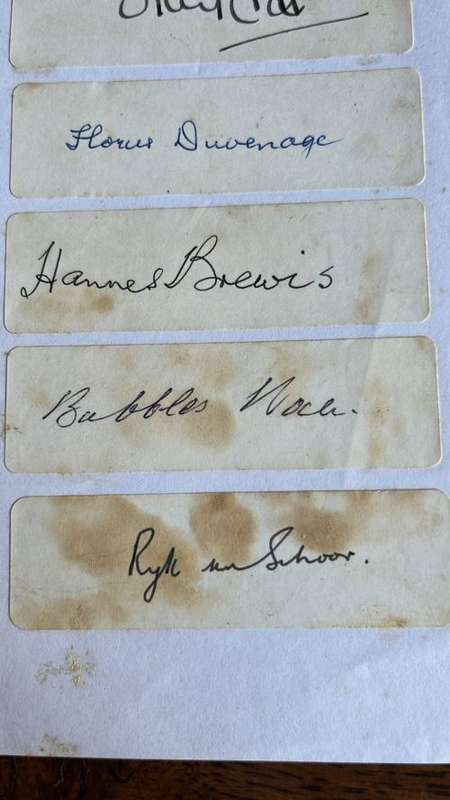 Floris Duvenage
Hannes Brewis
Bubbles Koch.
Ryk van Schoor.